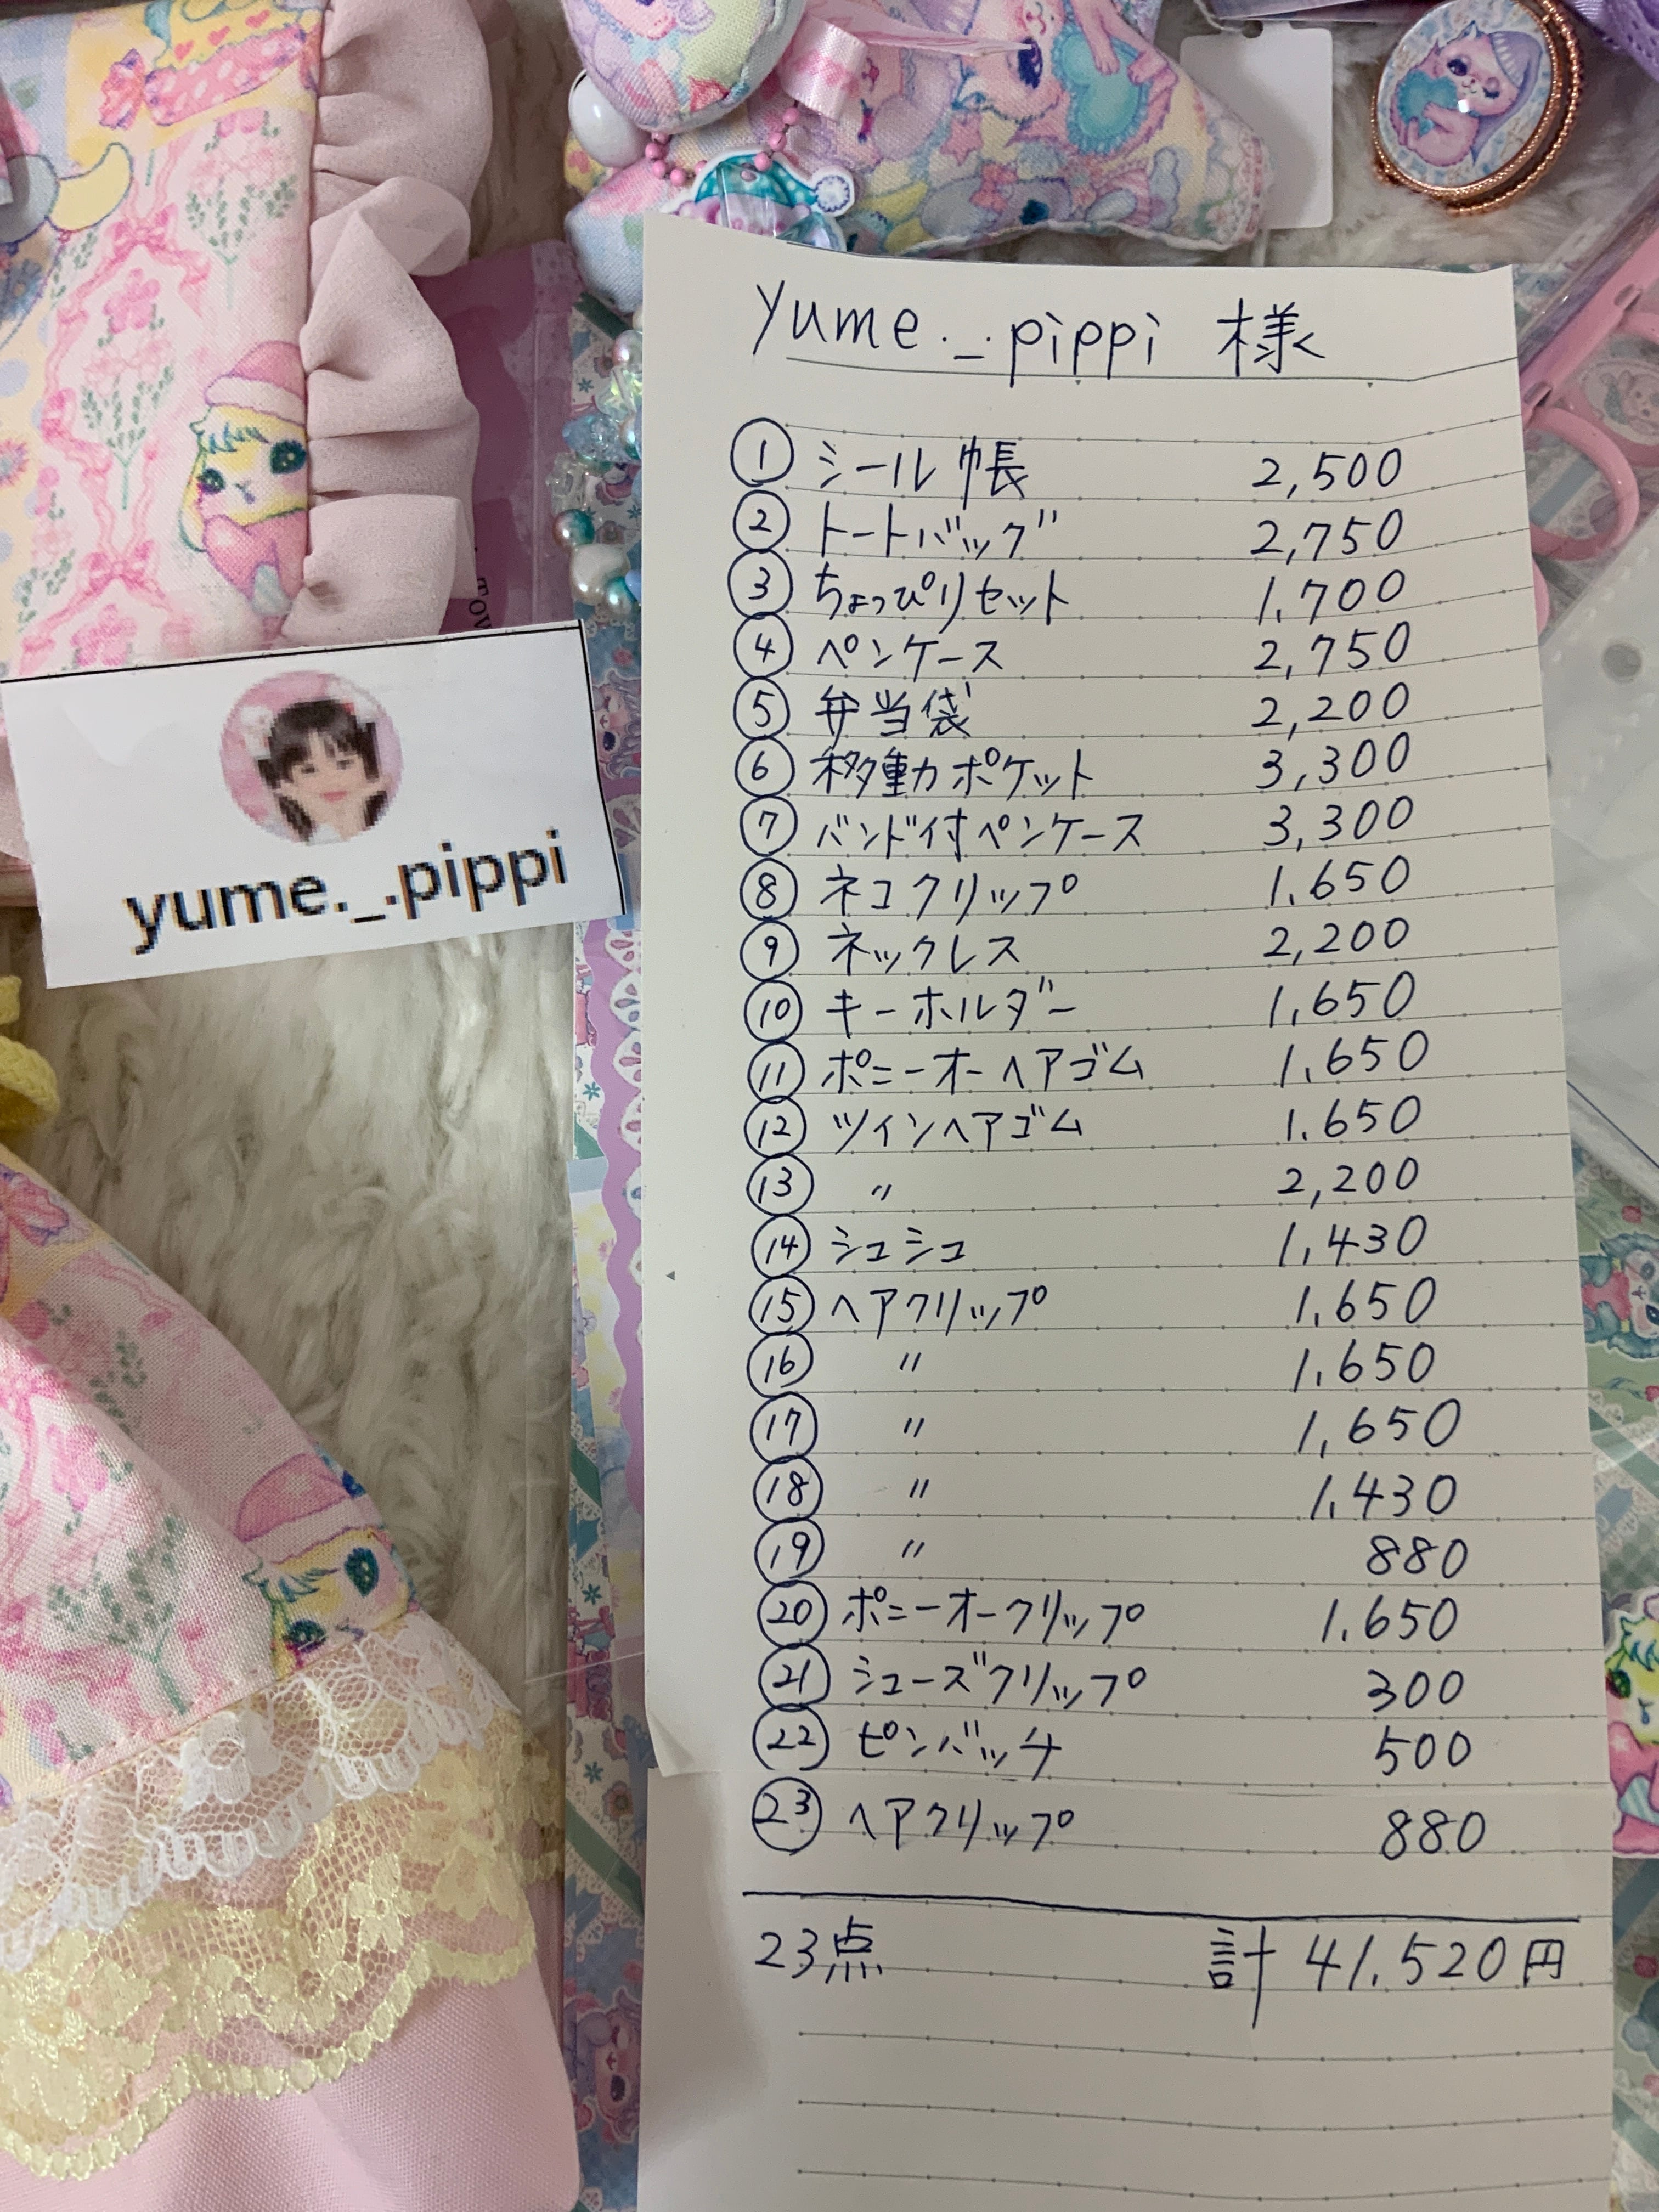 yume._.pippi 様
① シール帳 2,500
② トートバッグ 2,750
③ ちょっぴりセット 1,700
④ ペンケース 2,750
⑤ 弁当袋 2,200
⑥ 移動ポケット 3,300
⑦ バンド付ペンケース 3,300
⑧ ネコクリップ 1,650
⑨ ネックレス 2,200
⑩ キーホルダー 1,650
⑪ ポニーオーヘアゴム 1,650
⑫ ツインヘアゴム 1,650
⑬ 〃 2,200
⑭ シュシュ 1,430
⑮ ヘアクリップ 1,650
⑯ 〃 1,650
⑰ 〃 1,650
⑱ 〃 1,430
⑲ 〃 880
⑳ ポニーオークリップ 1,650
㉑ シューズクリップ 300
㉒ ピンバッチ 500
㉓ ヘアクリップ 880
23点 計 41,520円
yume._.pippi